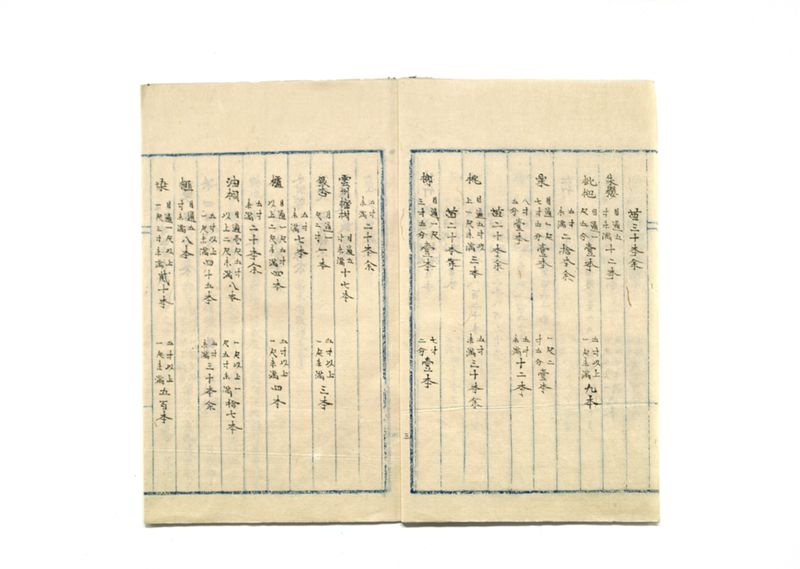 苗三十本余
朱櫻 目通五寸未満十二本
枇杷 目通一尺五寸壹本 五寸以上一尺未満九本
五寸未満二拾本余
栗 目通一尺七寸五分壹本 一尺二寸五分壹本
八寸五分壹本 五寸未満十二本
苗二十本余
桃 目通五寸以上一尺未満三本 五寸未満三十本余
苗二十本余
目通一尺三寸五分壹本 七寸二分壹本
五寸未満二十本余
雲州橙樹 目通五寸未満十七本
銀杏 目通一尺二寸一本 五寸以上一尺未満三本
五寸未満七本
櫨 目通一尺五寸以上二尺未満四本 五寸以上一尺未満四本
五寸未満二十本余
油桐 目通壱尺五寸以上二尺未満八本 一尺以上一尺五寸未満拾七本
一尺未満四十五本 五寸未満三十本余
目通五寸未満八本
目通一尺以上一尺未満貮十本 五寸以上一尺未満五百本